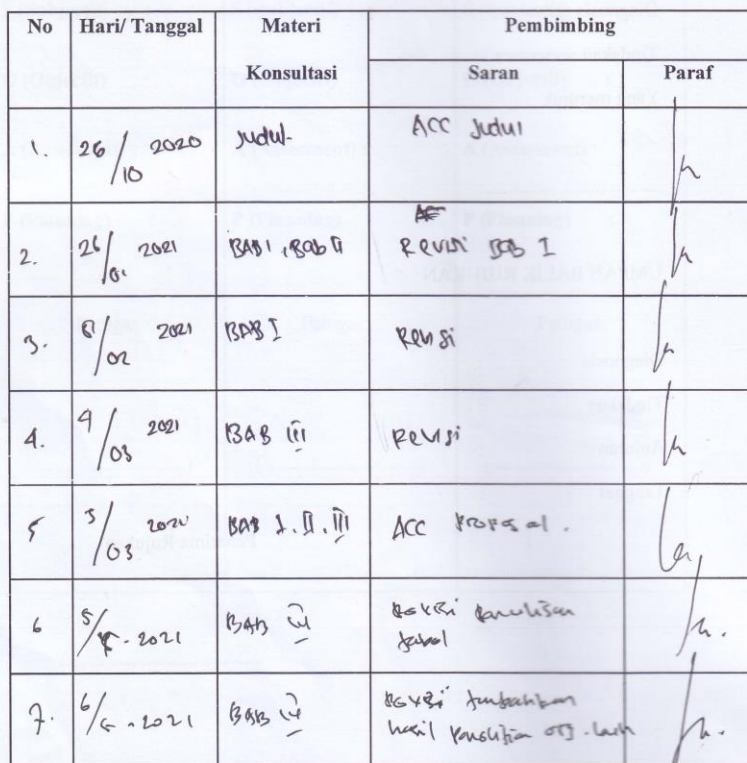 No Hari/ Tanggal Materi Konsultasi Pembimbing
Saran Paraf
1. 26/10 2020 Judul ACC Judul
2. 26/01 2021 BAB I, Bab II Revisi BAB I
3. 8/02 2021 BAB I Revisi
4. 4/03 2021 BAB III Revisi
5 5/03 BAB I. II. III ACC Proposal.
6 5/ - 2021 BAB IV Revisi penulisan
tabel
7. 6/ - 2021 BAB IV Revisi tambahkan
hasil penelitian